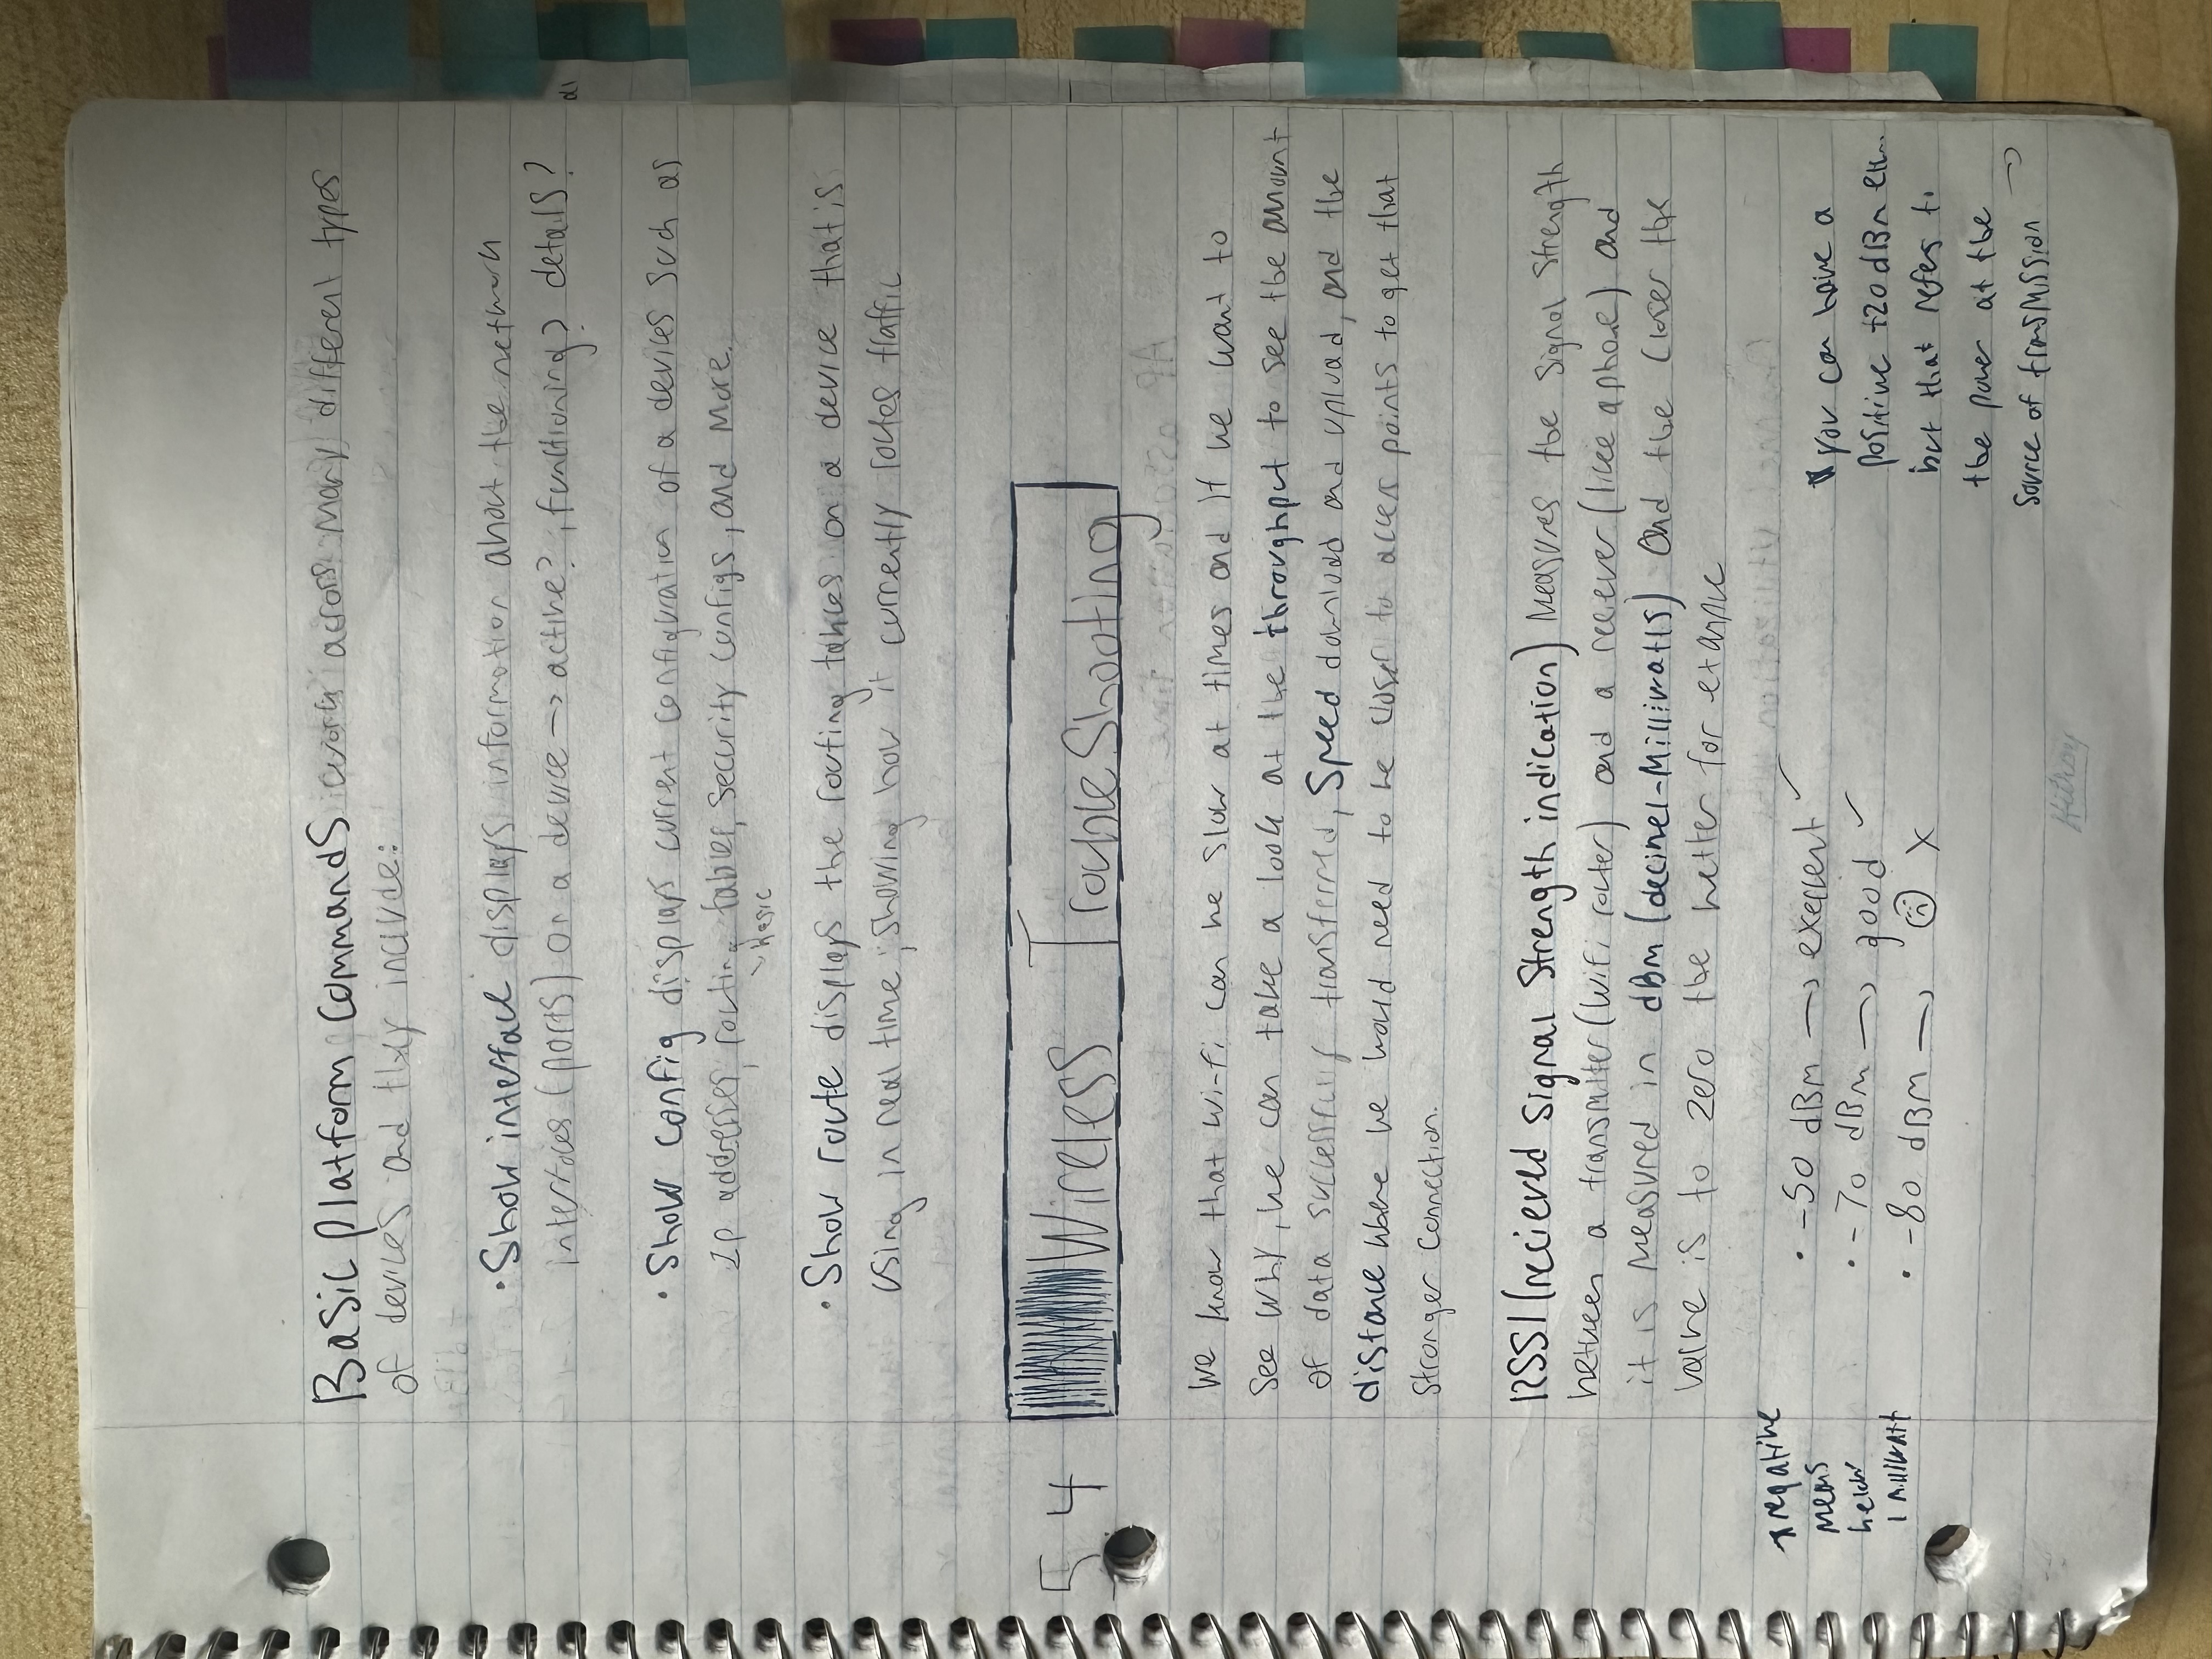 Basic Platform Commands work across many different types
of devices and they include:
• Show interface displays information about the network
interfaces (ports) on a device → active?, functioning? details?
• Show config displays current configuration of a devices such as
Ip addresses, routing tables, security configs, and more.
↘ basic
• Show route displays the routing tables on a device that is
using in real time, showing how it currently routes traffic
54 Wireless TroubleShooting
We know that Wi-Fi can be slow at times and if we want to
see why, we can take a look at the throughput to see the amount
of data successfully transferred, Speed download and upload, and the
distance where we would need to be closer to access points to get that
stronger connection.
RSSI (recieved Signal Strength indication) measures the signal strength
between a transmitter (wifi router) and a reciever (like a phone) and
it is measured in dBm (decinel-Milliwatts) and the closer the
value is to zero the better for example
*negative
means
below
1 milliwatt
• -50 dBm → exellent ✓
• -70 dBm → good ✓
• -80 dBm → ☹ X
*you can have a
positive +20 dBm etc..
but that refers to
the power at the
source of transmission →
Hilroy